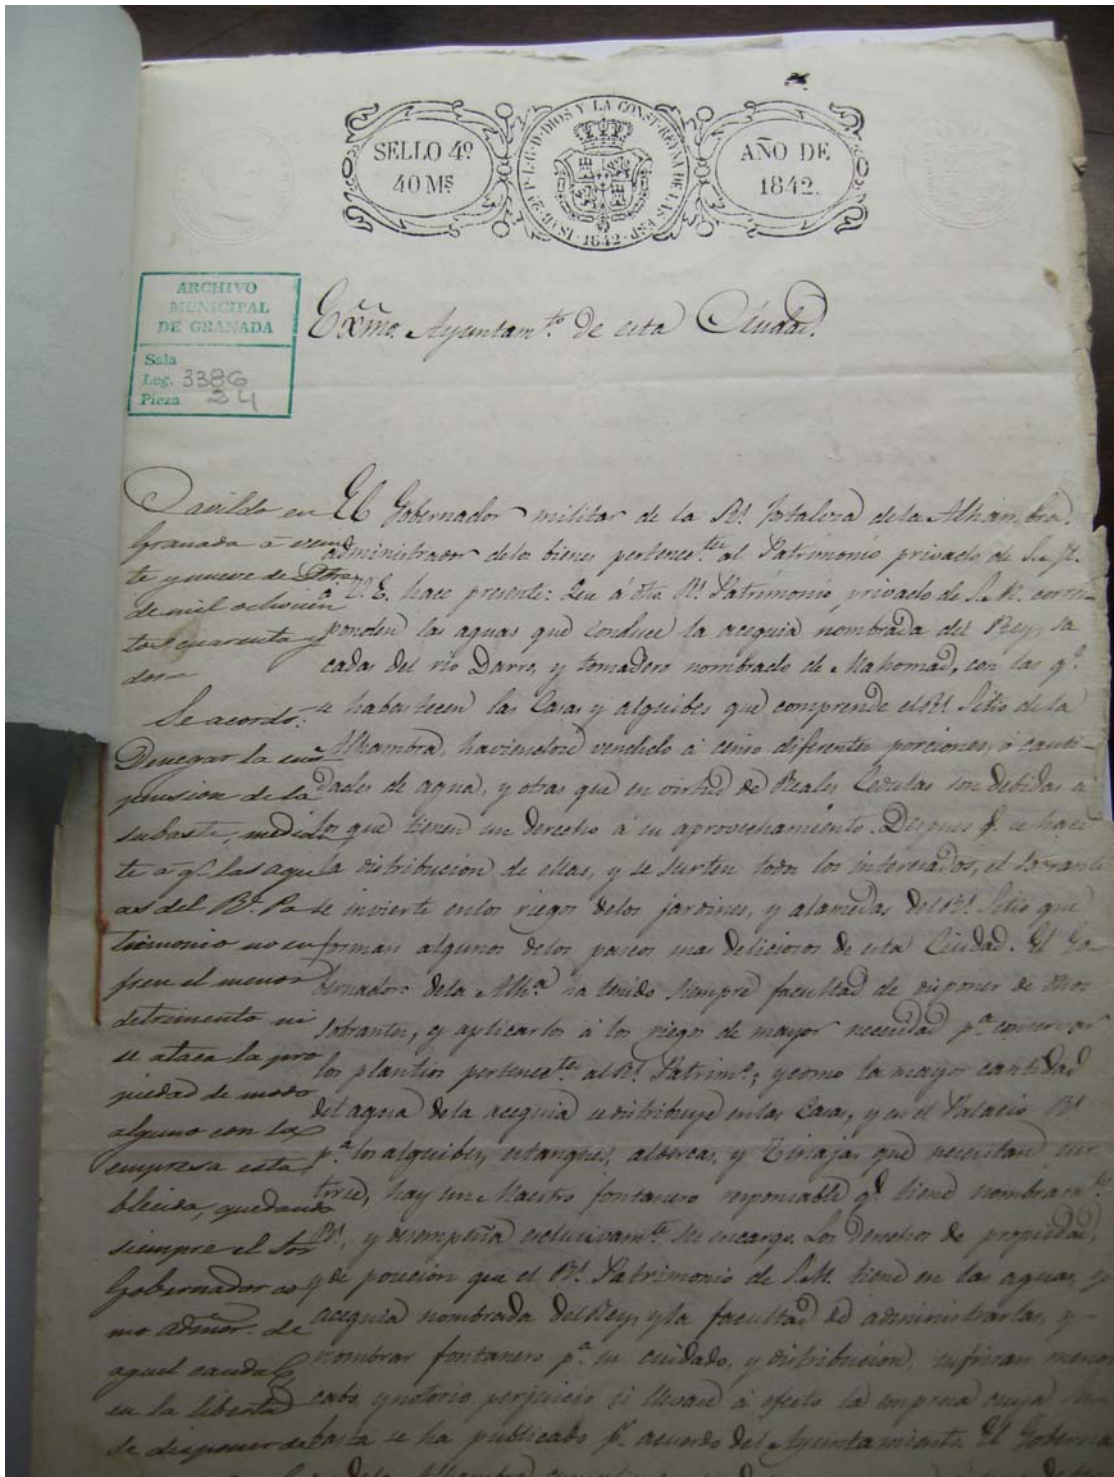 SELLO 4º
40 Mˢ
ISAB. 2ª P. L. G. D. DIOS Y LA CONST. REYNA DE LAS ESP. 1842.
AÑO DE
1842.
ARCHIVO
MUNICIPAL
DE GRANADA
Sala
Leg. 3386
Pieza 24
Exmo. Ayuntamto. de esta Ciudad.
Cavildo en
Granada á vein
te y nueve de
de mil ochocien
tos cuarenta y
dos
Se acordó:
Denegar la sus
pension de la
subasta, median
te á qe. las agu
as del Rl. Pa
trimonio no su
fren el menor
detrimento ni
se ataca la pro
piedad de modo
alguno con la
empresa esta
blecida, quedando
siempre el Sor
Gobernador co
mo admor. de
aquel caudal
en la libertad
de disponer de
El Gobernador militar de la Rl. fortaleza de la Alhambra,
administrador de los bienes pertenectes. al Patrimonio privado de S. M.
á V. E. hace presente: Que á dho. Rl. Patrimonio privado de S. M. corres
ponden las aguas que conduce la acequia nombrada del Rey, sa
cadas del rio Darro, y tomadero nombrado de Mahomad, con las qe.
se habastecen las Casas y algibes que comprende el Rl. Sitio de la
Alhambra, haviendose vendido á censo diferentes porciones, ó canti-
dades de agua, y otras que en virtud de Reales Cedulas son debidas a
los que tienen un derecho á su aprovechamiento. Despues qe. se hace
la distribucion de ellas, y se surten todos los interesados, el sobrante
se invierte en los riegos de los jardines, y alamedas del Rl. Sitio que
forman algunos de los paseos mas deliciosos de esta Ciudad. El Go
bernador de la Alha. ha tenido siempre facultad de disponer de dhos
sobrantes, y aplicarlos á los riegos de mayor necesidad pa. conservar
los plantios pertenectes. al Rl. Patrimo.; y como la mayor cantidad
del agua de la acequia se distribuye en las Casas, y en el Palacio Rl
pa. los algibes, estanques, albercas, y tinajas que necesitan sur
tirse, hay un Maestro fontanero responsable qe. tiene nombramto.
Rl., y desempeña esclusivamte. su encargo. Los derechos de propiedad,
y de posecion que el Rl. Patrimonio de S. M. tiene en las aguas, y
acequia nombrada del Rey, y la facultad de administrarlas, y
nombrar fontanero pa. su cuidado, y distribucion, sufririan menos
cabo, y notorio perjuicio si llevase á efecto la empresa cuya su
basta se ha publicado pr. acuerdo del Ayuntamiento. El Goberna
de la Alhambra